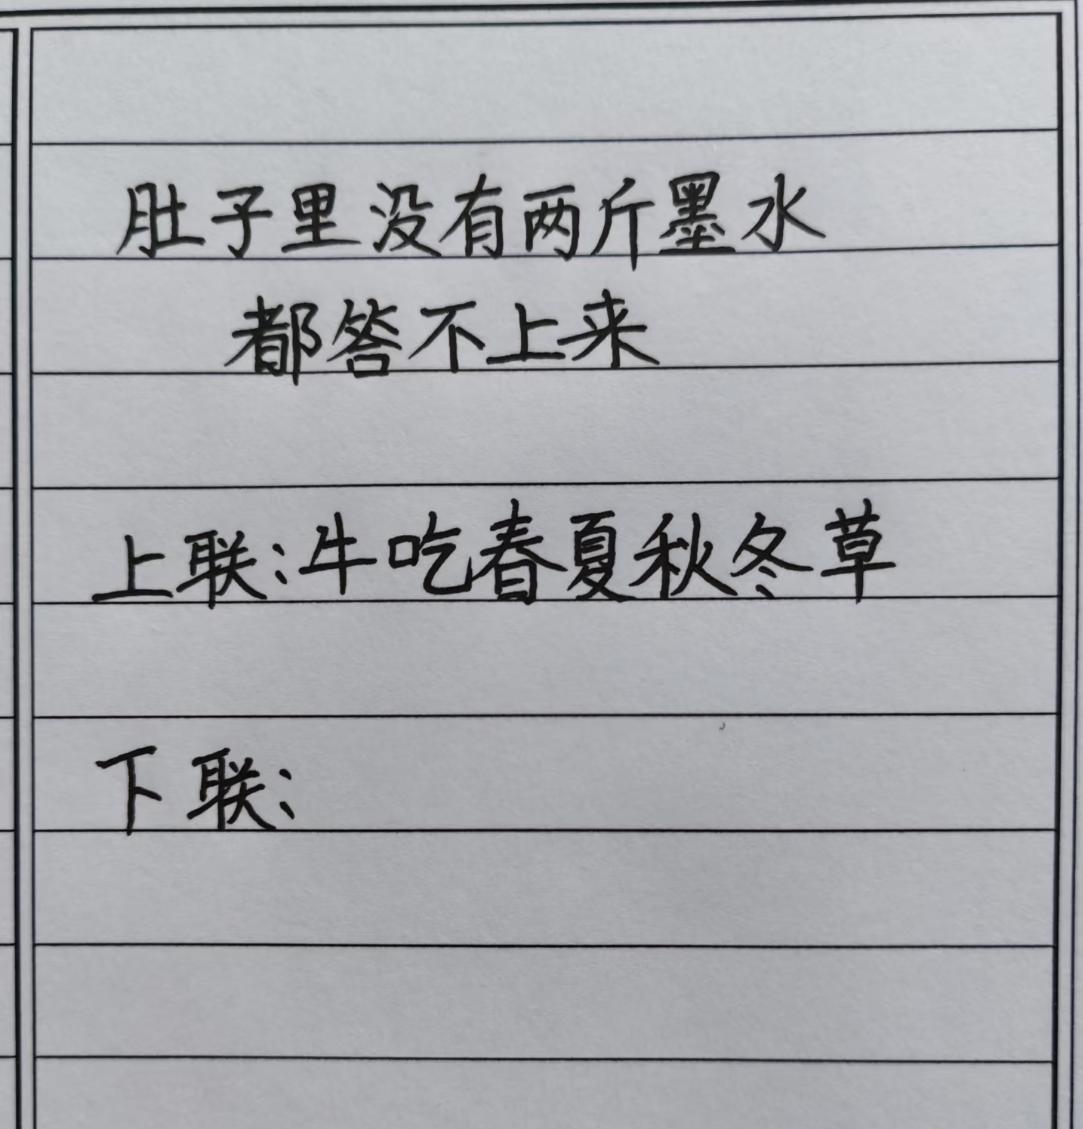 肚子里没有两斤墨水
都答不上来
上联:牛吃春夏秋冬草
下联: